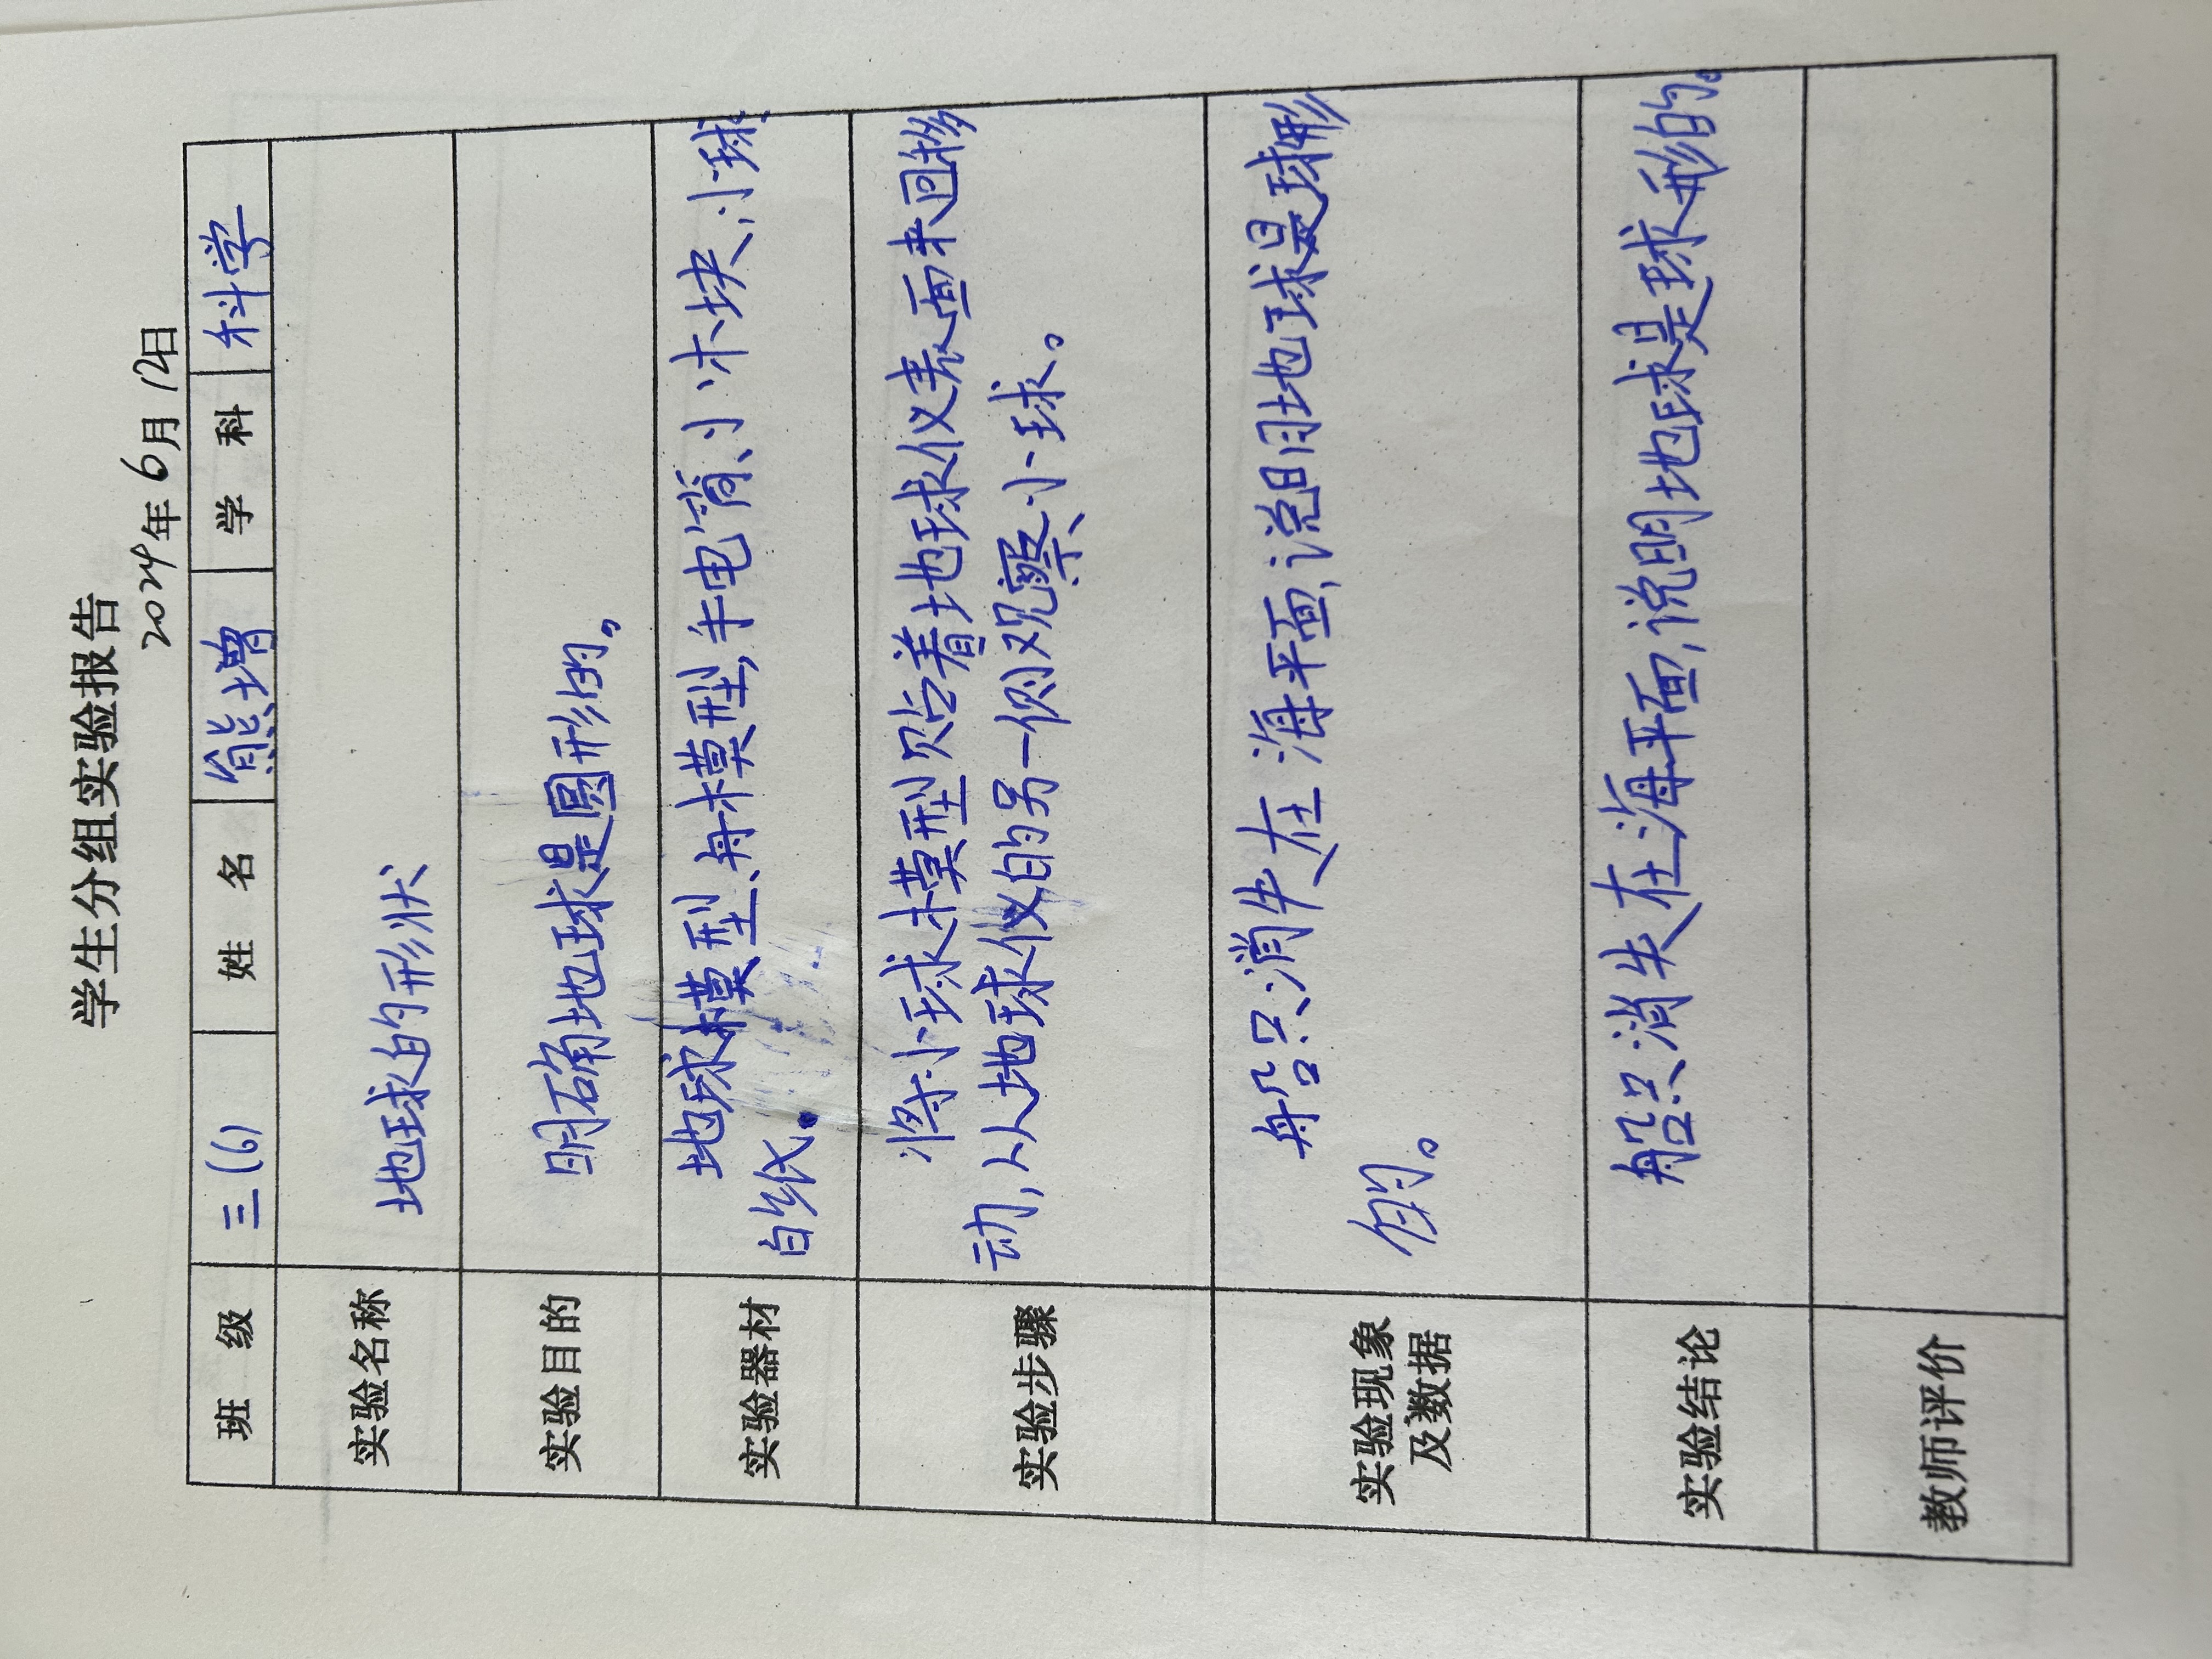 学生分组实验报告
2024年6月12日
班 级 三(6) 姓 名 熊增 学 科 科学
实验名称 地球的形状
实验目的 明确地球是圆形的。
实验器材 地球模型、舟模型,手电筒、小木块、小球、
白纸.
实验步骤 将小球模型贴着地球仪表面来回移
动,从地球仪的另一侧观察小球。
实验现象
及数据
船只消失在海平面,说明地球是球形
的。
实验结论 船只消失在海平面,说明地球是球形的。
教师评价